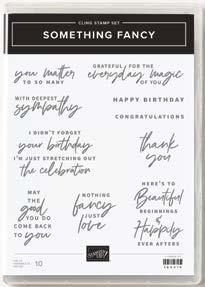 CLING STAMP SET
SOMETHING FANCY
you matter
TO SO MANY
GRATEFUL FOR THE
everyday magic
OF YOU
WITH DEEPEST
sympathy
HAPPY BIRTHDAY
CONGRATULATIONS
I DIDN'T FORGET
your birthday
I'M JUST STRETCHING OUT
the celebration
thank
you
MAY
THE
good
YOU DO
COME BACK
TO you
NOTHING
fancy
JUST
love
HERE'S TO
Beautiful
BEGINNINGS
& Happily
EVER AFTERS
10
STAMPIN' UP!